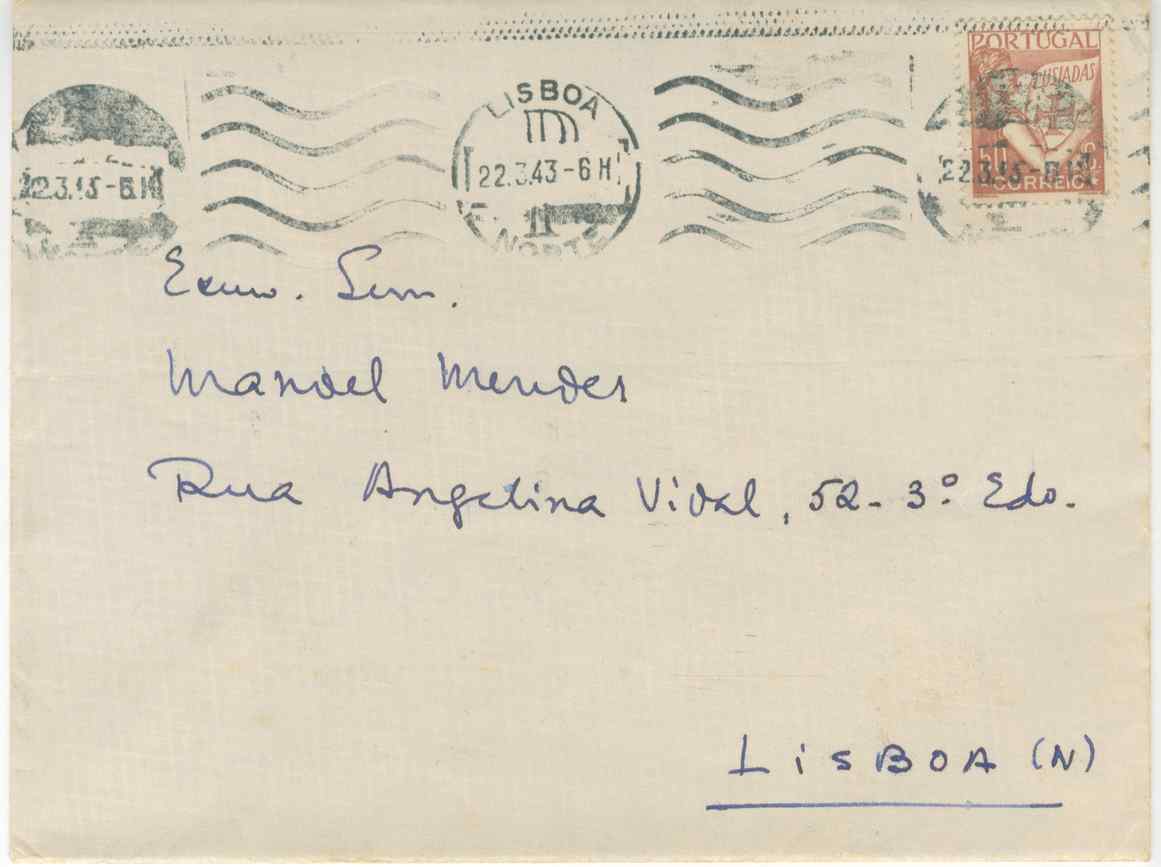 PORTUGAL
LUSIADAS
CORREIO
LISBOA
22.3.43-6H
22.3.43-6H
22.3.43-6H
NORTE
Exmo. Senr.
Manoel Mendes
Rua Angelina Vidal, 52-3º Edo.
LisBOA (N)